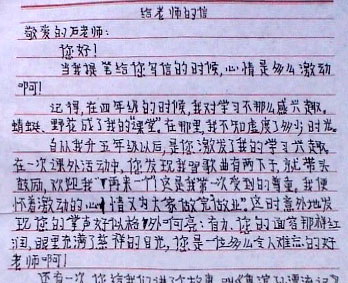 给老师的信
敬爱的石老师：
您好！
当我提笔给您写信的时候，心情是多么激动
啊！
记得，在四年级的时候，我对学习不那么感兴趣。
蜻蜓、野花成了我的"课堂"。在那里，我不知虚度了多少时光。
自从我升五年级以后，是您激发了我的学习兴趣。
在一次课外活动中，您发现我唱歌曲有两下子，就带头
鼓励，欢迎我"再来一个"这是我第一次受到的尊重，我便
怀着激动的心情又为大家做完做业"这时意外地发
现您的掌声好似格外响亮：有力，您的面容那样红
润，眼里充满了慈祥的目光，您是一位多么令人难忘的好
老师啊！
还有一次，您给我们讲了个故事，叫《鲁滨